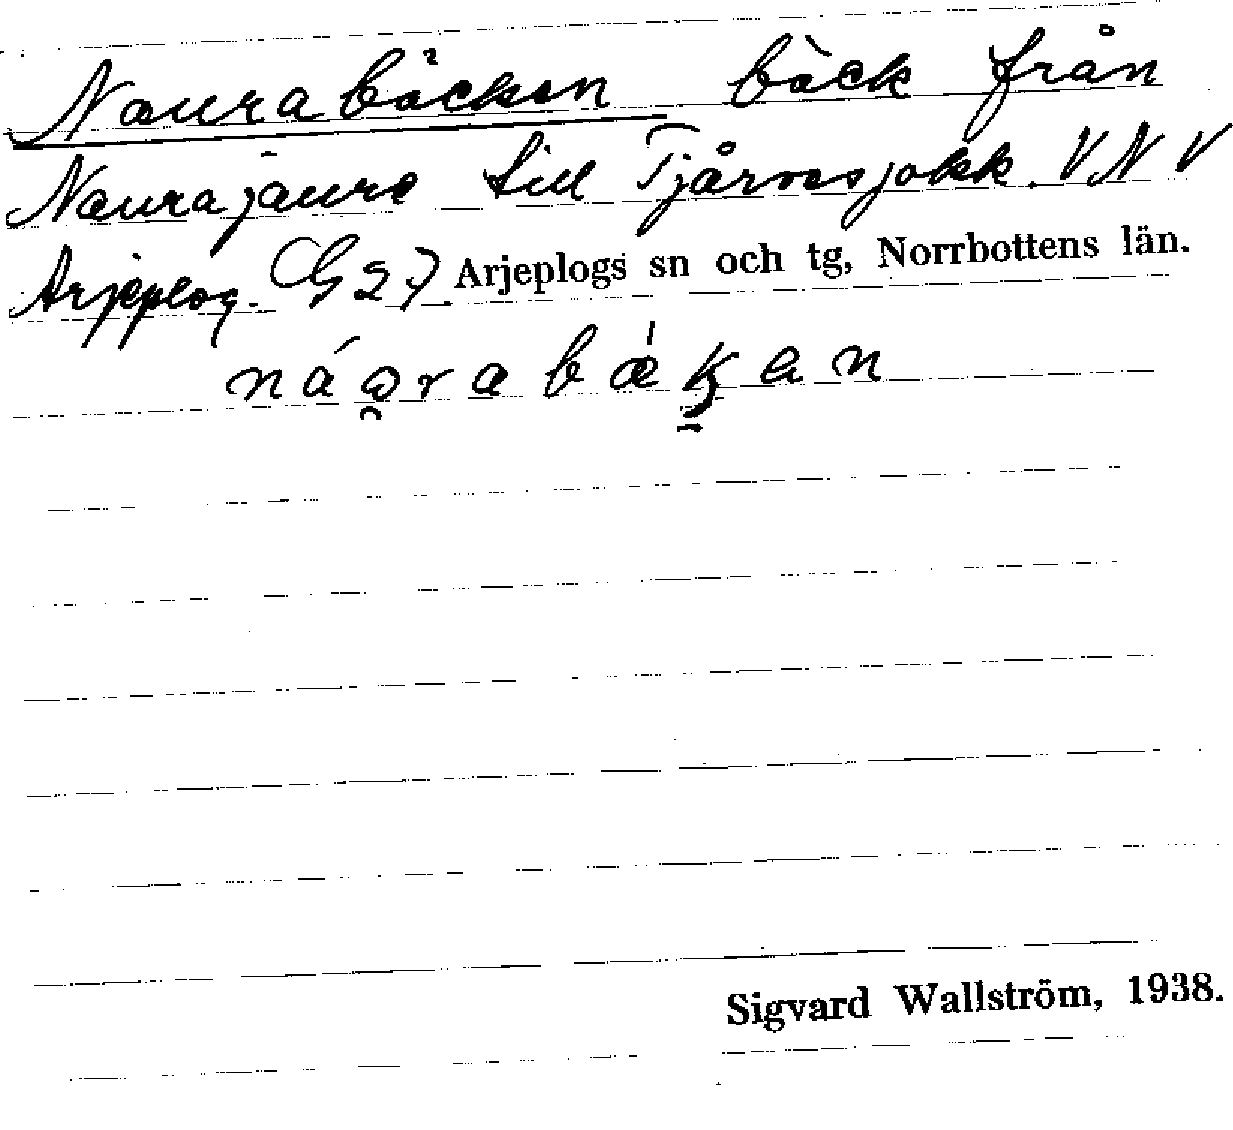 Naurabäcken bäck från
Naurajaure till Tjårvesjokk VNV
Arjeplog. G27 Arjeplogs sn och tg, Norrbottens län.
Sigvard Wallström, 1938.